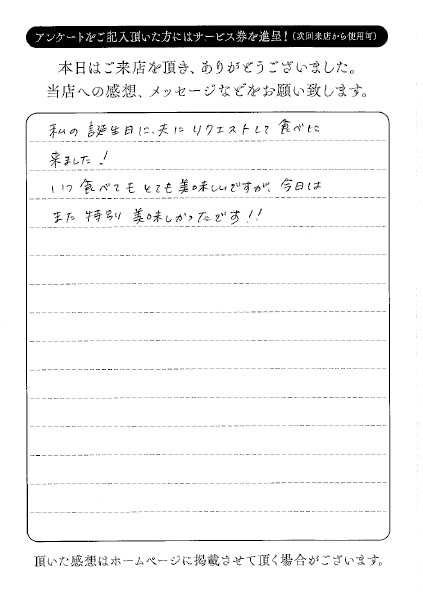 アンケートをご記入頂いた方にはサービス券を進呈!(次回来店から使用可)
本日はご来店を頂き、ありがとうございました。
当店への感想、メッセージなどをお願い致します。
私の誕生日に、夫にリクエストして食べに
来ました!
いつ食べてもとても美味しいですが、今日は
また特別美味しかったです!!
頂いた感想はホームページに掲載させて頂く場合がございます。